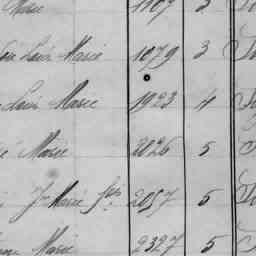 Marie 1107 3
Louis Marie 1079 3
Louis Marie 1923 4
Marie 2026 5
Jn Marie fils 2057 5
Marie 2327 5